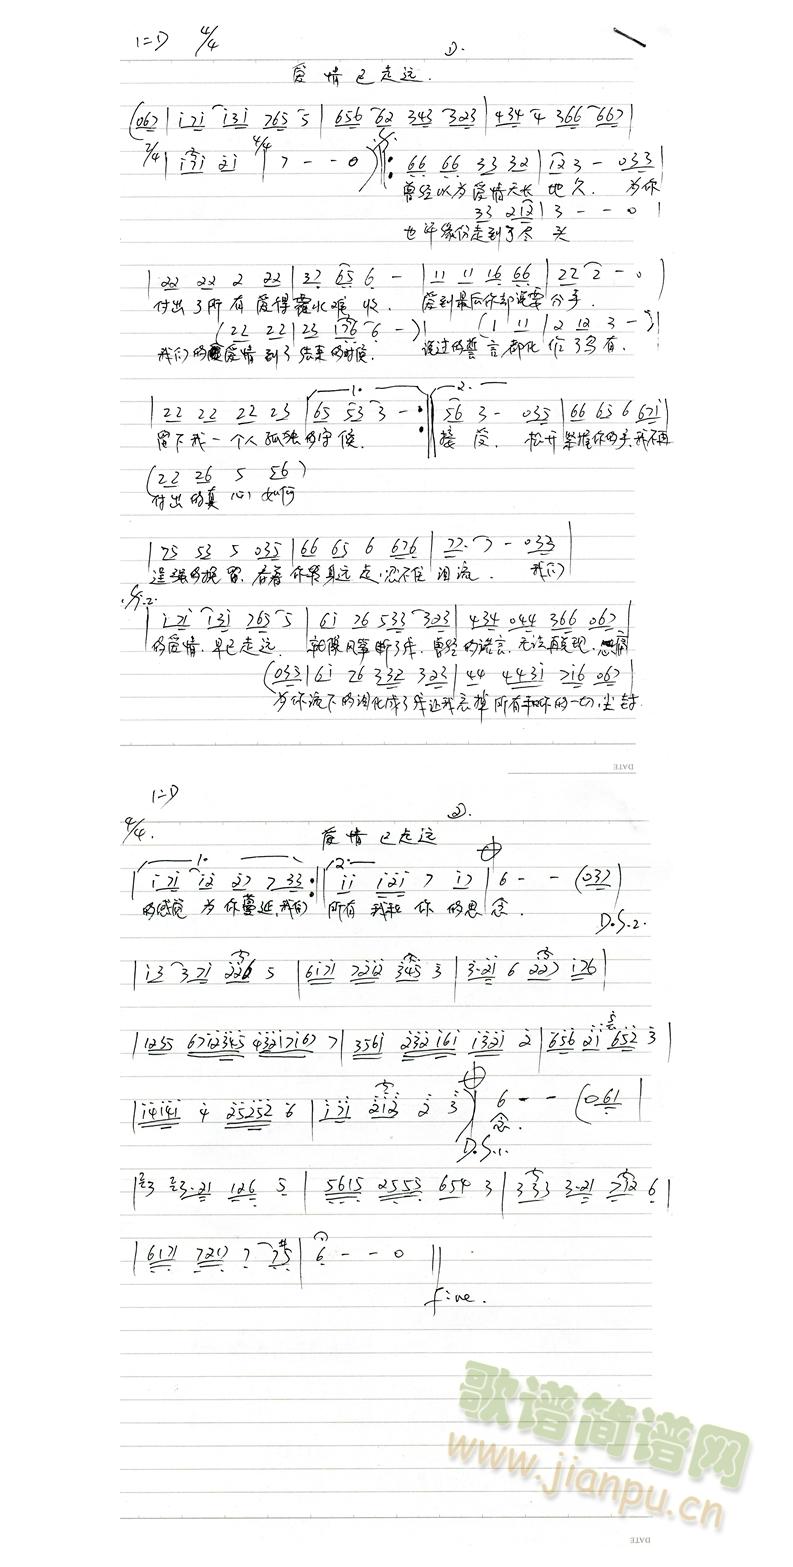 1=D 4/4
①.
爱情已走远.
(067| i7i i3i 765 5 | 656 62 343 323 | 434 4 366 667 |
2/4 | i7i 2i | 4/4 7 - - 0 ) 𝄋 ‖: 66 66 33 32 | i23 - 033 |
曾经以为爱情天长地久. 为你
33 212 | 3 - - 0 |
也许缘份走到了尽头
| 22 22 2 22 | 37 65 6 - | 11 11 16 66 | 22 2 - 0 )
付出了所有 爱得覆水难收. 爱到最后你却说要分手.
(22 22 | 23 176 6 - )| (1 11 | 2 12 3 - )|
我们的爱情到了结束的时候. 说过的誓言都化作了乌有.
| 22 22 22 23 | 1. 65 53 3 - :‖ 2. 56 3 - 035 | 66 65 6 67i |
留下我一个人孤独的守候. 接受. 松开紧握你的手, 我不再
(22 26 5 56)
付出的真心如何
| 75 53 5 035 | 66 65 6 676 | 77. 7 - 033 |
逞强的挽留. 看着你转身远走, 忍不住泪流. 我们
.S.2.
| i7i i3i 765 5 | 6i 76 533 323 | 434 044 366 067 |
的爱情. 早已走远. 就像风筝断了线. 曾经的诺言. 无法再兑现. 悲痛
(033 | 6i 76 332 323 | 44 443i 7i6 067 |
为你流下的泪化成了线 让我忘掉所有和你的一切. 尘封
DATE
1=D
4/4.
②.
爱情已走远
| 1. i7i i2 27 7 33 :‖ 2. ii i2i 7 i7 | 6 - - (037 |
的感觉 为你蔓延, 我们 所有我和你的思念.
D.S.2.
| i3 37i 226 5 | 6i7i 722 345 3 | 3·2i 6 227 i76 |
| 1235 6712345 43217167 7 | 356i 232161 132i 2 | 656 2i 652 3 |
| i4i4i 4 25252 6 | i7i 2i2 2 3 ) 6 - - (061 |
念.
D.S.1.
| 3 3·21 126 5 | 5615 2553 654 3 | 333 3·21 712 6 |
| 6171 7217 7 7#5 | 6 - - 0 ‖
fine.
歌谱简谱网
www.jianpu.cn
DATE